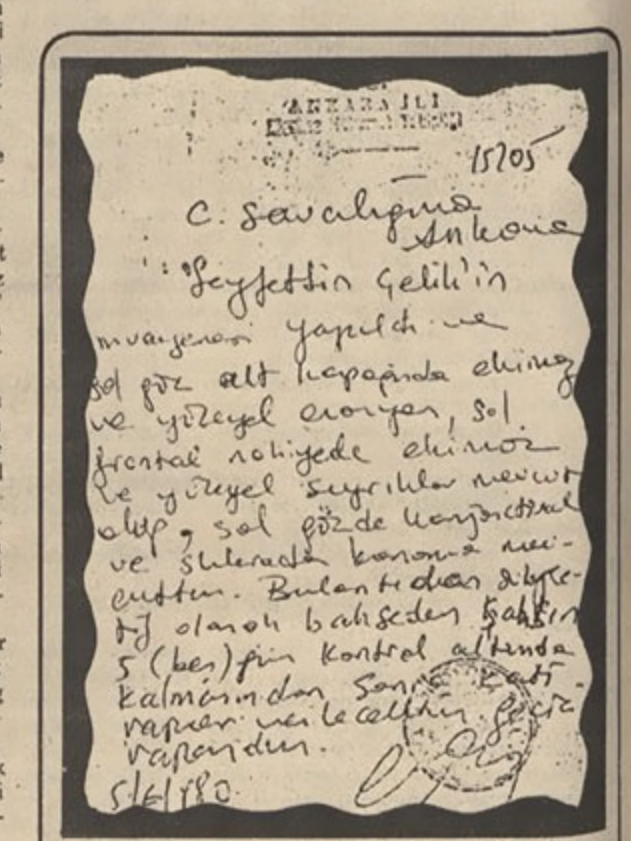 ANKARA İLİ
15705
C. Savcılığına
Ankara
Seyfettin Çelik'in
muayenesi yapıldı ve
sol göz alt kapağında ekimoz
ve yüzeyel erozyon, sol
frontal nahiyede ekimoz
ve yüzeyel sıyrıklar mevcut
olup, sol gözde konjonktival
ve sklerada kanama mev-
cuttur. Bulantıdan
olarak bahseden şahsın
5 (beş) gün kontrol altında
kalmasından sonra kati
rapor verileceğini geçici
rapordur.
5/6/980